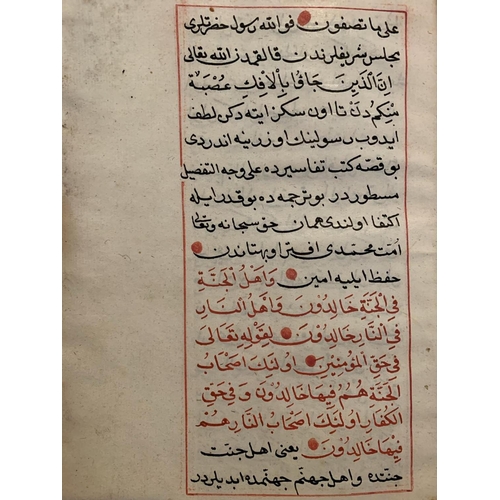 علی ما تصفون فوالله رسول حضرتلری
مجلس شریفلرندن قالقمدن الله تعالی
اِنَّ الَّذِينَ جَاؤُا بِالْاِفْكِ عُصْبَةٌ
مِنْكُمْ دن تا اون سكز ایته دكن لطف
ایدوب رسولینك اوزرینه اندردی
بو قصه كتب تفاسیرده علی وجه التفصیل
مسطور در بو ترجمه ده بو قدر ایله
اكتفا اولندی همان حق سبحانه وتعالی
امت محمدی افترا وبهتاندن
حفظ ایلیه امین وَاَهْلُ الْجَنَّةِ
فِي الْجَنَّةِ خَالِدُونَ وَاَهْلُ النَّارِ
فِي النَّارِ خَالِدُونَ لِقَوْلِهِ تَعَالَى
فِي حَقِّ الْمُؤْمِنِينَ اُولٰئِكَ اَصْحَابُ
الْجَنَّةِ هُمْ فِيهَا خَالِدُونَ وَفِي حَقِّ
الْكُفَّارِ اُولٰئِكَ اَصْحَابُ النَّارِ هُمْ
فِيهَا خَالِدُونَ یعنی اهل جنت
جنتده و اهل جهنم جهنمده ابدیلردر